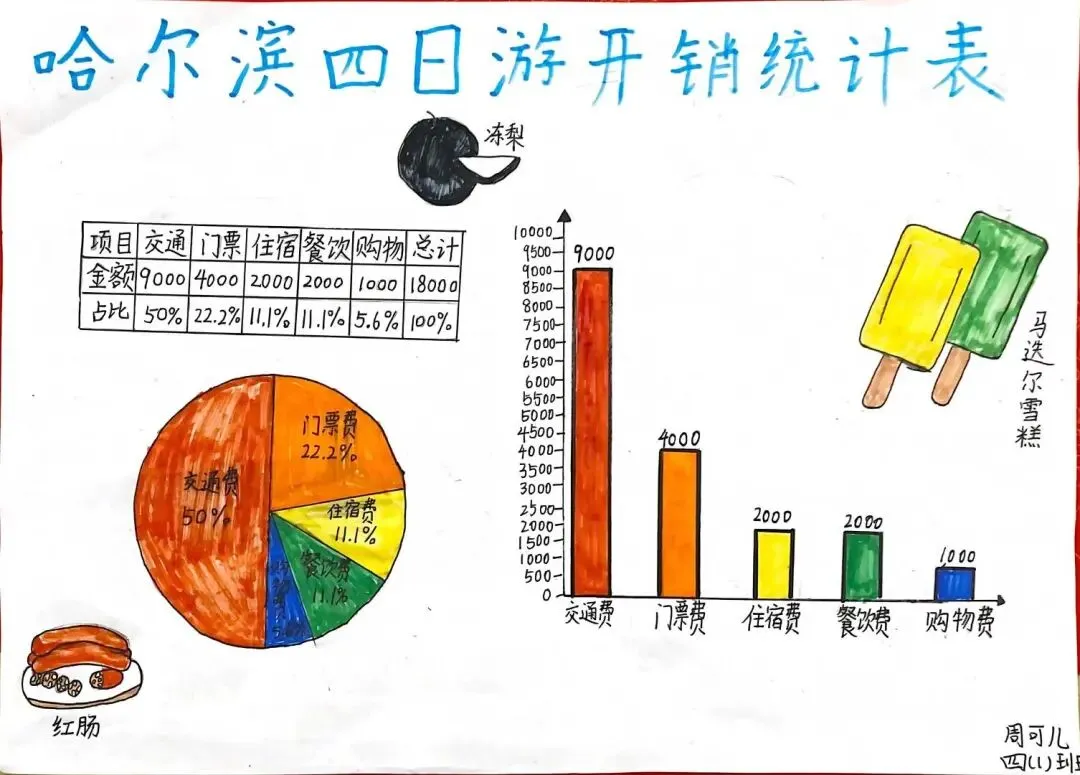 哈尔滨四日游开销统计表
冻梨
项目 交通 门票 住宿 餐饮 购物 总计
金额 9000 4000 2000 2000 1000 18000
占比 50% 22.2% 11.1% 11.1% 5.6% 100%
门票费
22.2%
交通费
50%
住宿费
11.1%
餐饮费
11.1%
购物费
5.6%
10000
9500
9000
8500
8000
7500
7000
6500
6000
5500
5000
4500
4000
3500
3000
2500
2000
1500
1000
500
0
9000
4000
2000
2000
1000
交通费 门票费 住宿费 餐饮费 购物费
马迭尔雪糕
红肠
周可儿
四(1)班